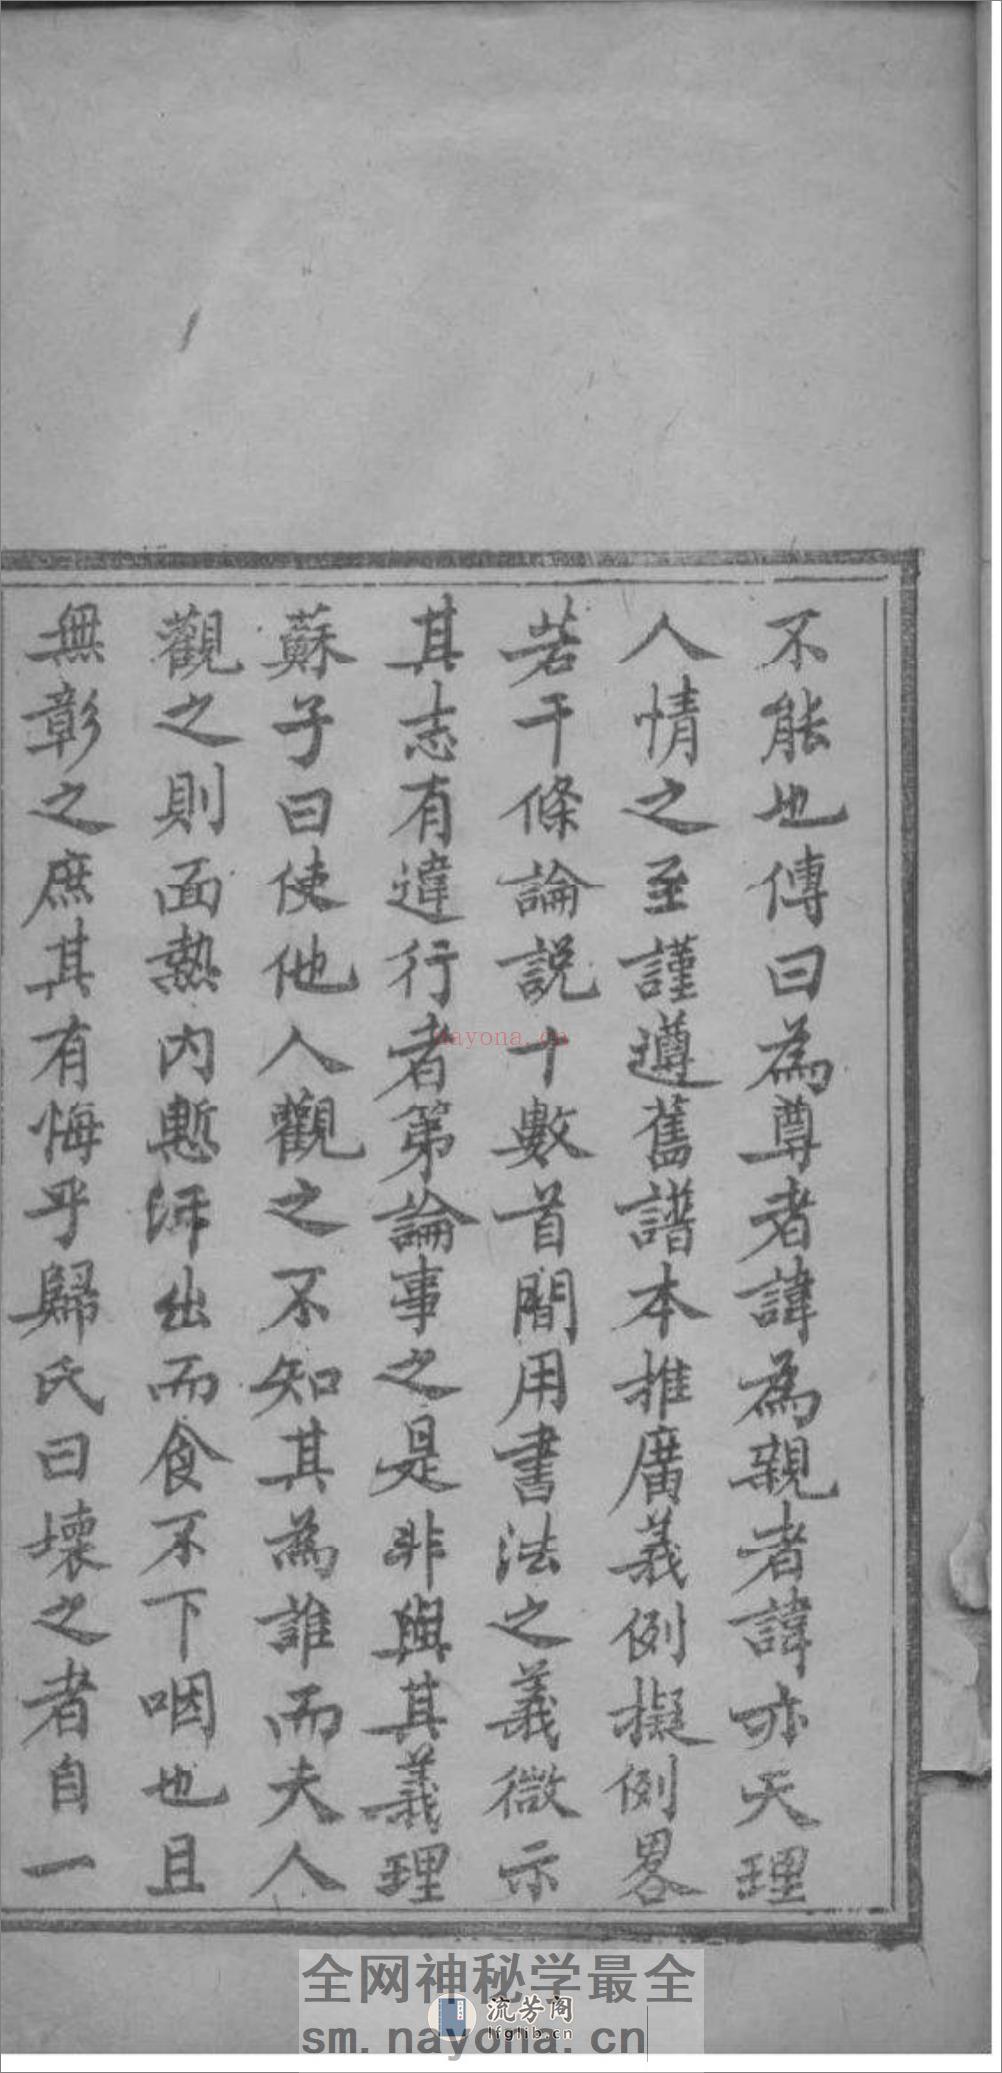 不能也傳曰為尊者諱為親者諱亦天理
人情之至謹遵舊譜本推廣義例擬例畧
若干條論説十數首間用書法之義微示
其志有違行者第論事之是非與其義理
蘇子曰使他人觀之不知其為誰而夫人
觀之則面熱内慙汗出而食不下咽也且
無彰之庶其有悔乎歸氏曰壞之者自一
nayona.cn
全网神秘学最全
流芳阁
lfglib.cn
sm.nayona.cn